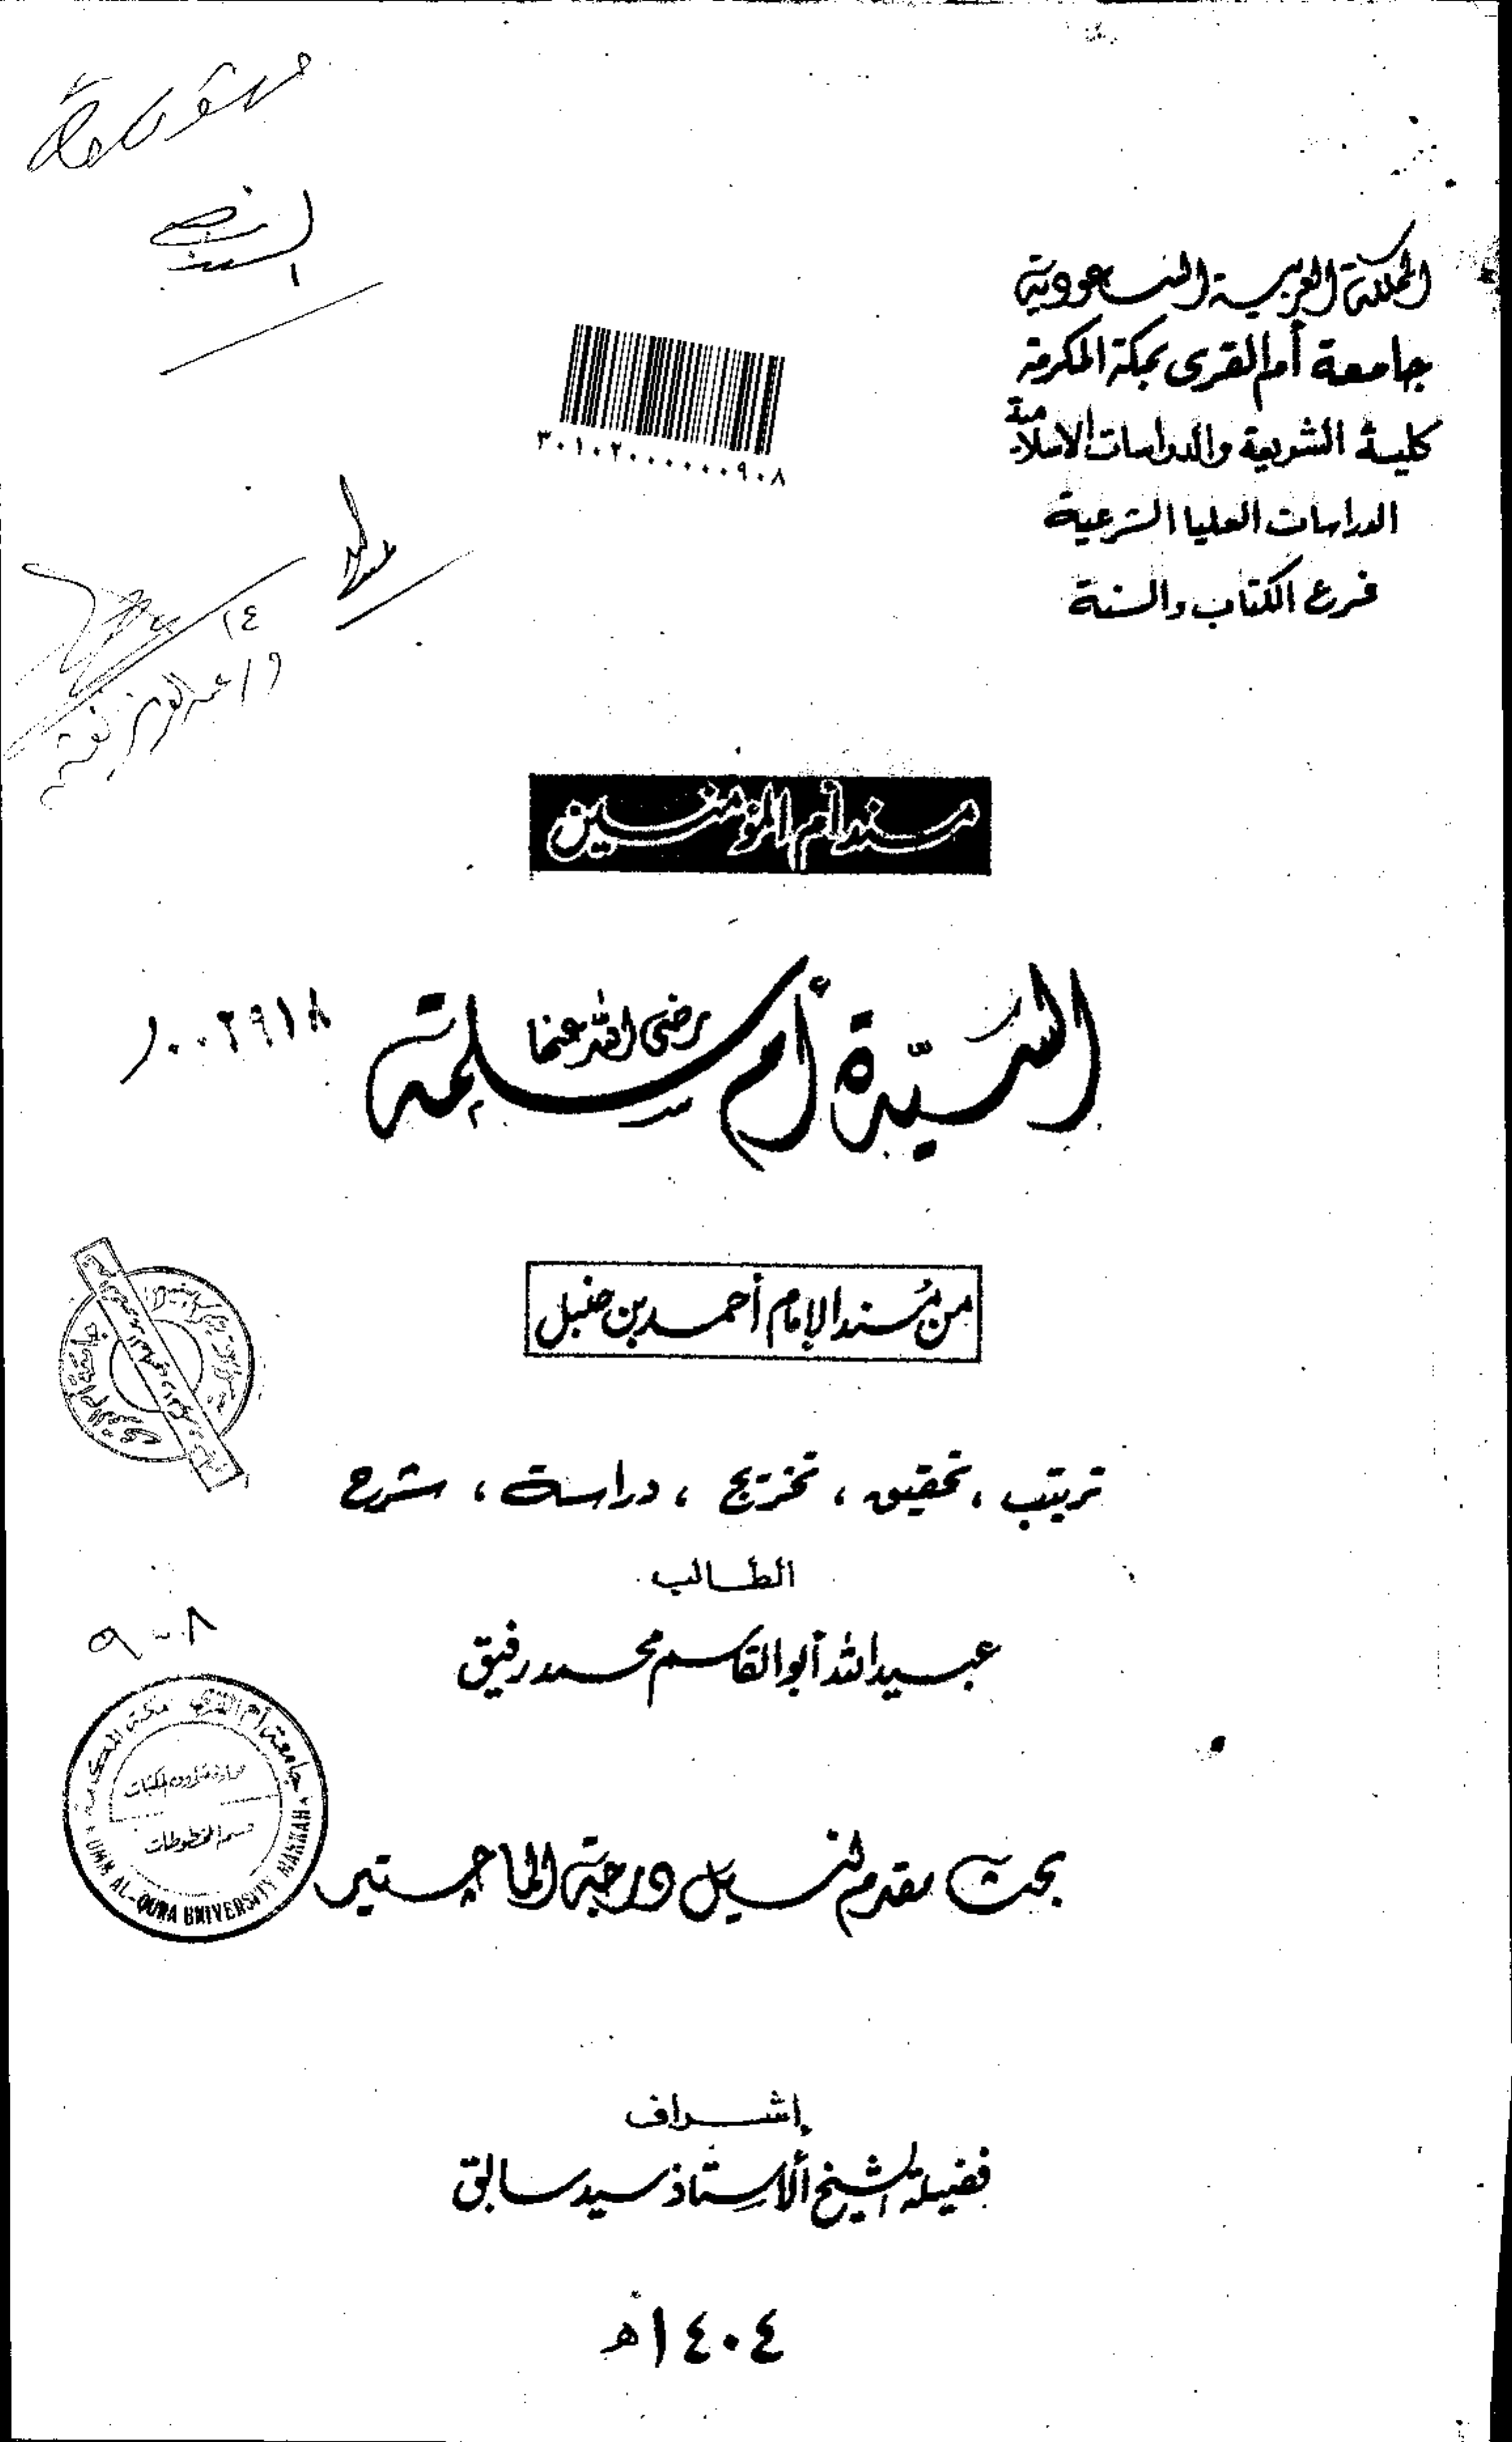 المملكة العربية السعودية
جامعة أم القرى بمكة المكرمة
كلية الشريعة والدراسات الاسلامية
الدراسات العليا الشرعية
فرع الكتاب والسنة
٣٠١٠٢٠٠٠٠٠٠٩٠٨
١٤
مسند أم المؤمنين
السيدة أم سلمة رضى الله عنها
١٠٠٢٩١٨
من مُسند الإمام أحمد بن حنبل
ترتيب ، تحقيق ، تخريج ، دراسة ، شرح
الطالب
عبيد الله أبو القاسم محمد رفيق
٩٠٨
جامعة أم القرى مكة المكرمة
عمادة شئون المكتبات
قسم المخطوطات
UMM AL-QURA UNIVERSITY MAKKAH
بحث مقدم لنيل درجة الماجستير
إشراف
فضيلة الشيخ الأستاذ سيد سابق
١٤٠٤ه